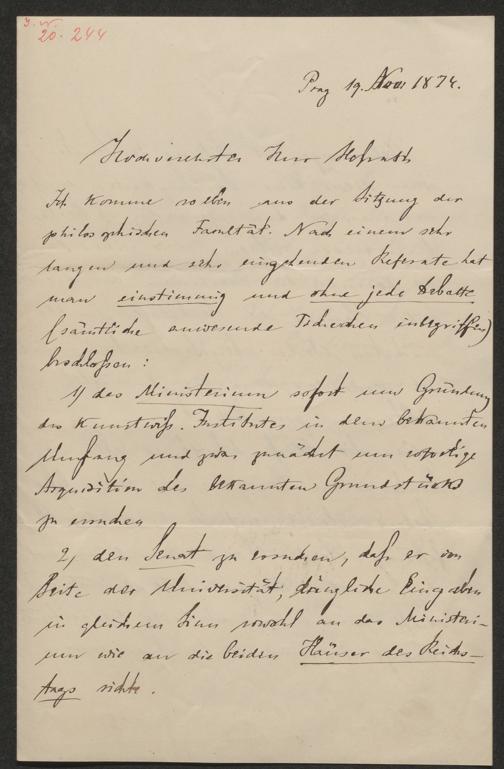 J. N.
20.244
Prag 19. Nov 1874.
Hochverehrter Herr Hofrath
Ich komme soeben aus der Sitzung der
philosophischen Facultät. Nach einem sehr
langen und sehr eingehenden Referate hat
man einstimmig und ohne jede Debatte
(sämtliche anwesende Tschechen inbegriffen)
beschloßen:
1) das Ministerium sofort um Gründung
des Kunstwiß. Institutes in dem bekannten
Umfang und zwar zunächst um sofortige
Acquisition des bekannten Grundstücks
zu ersuchen
2, den Senat zu ersuchen, daß er von
Seite der Universität, dringliche Eingaben
in gleichem Sinn sowohl an das Ministeri-
um wie an die beiden Häuser des Reichs-
tags richte.